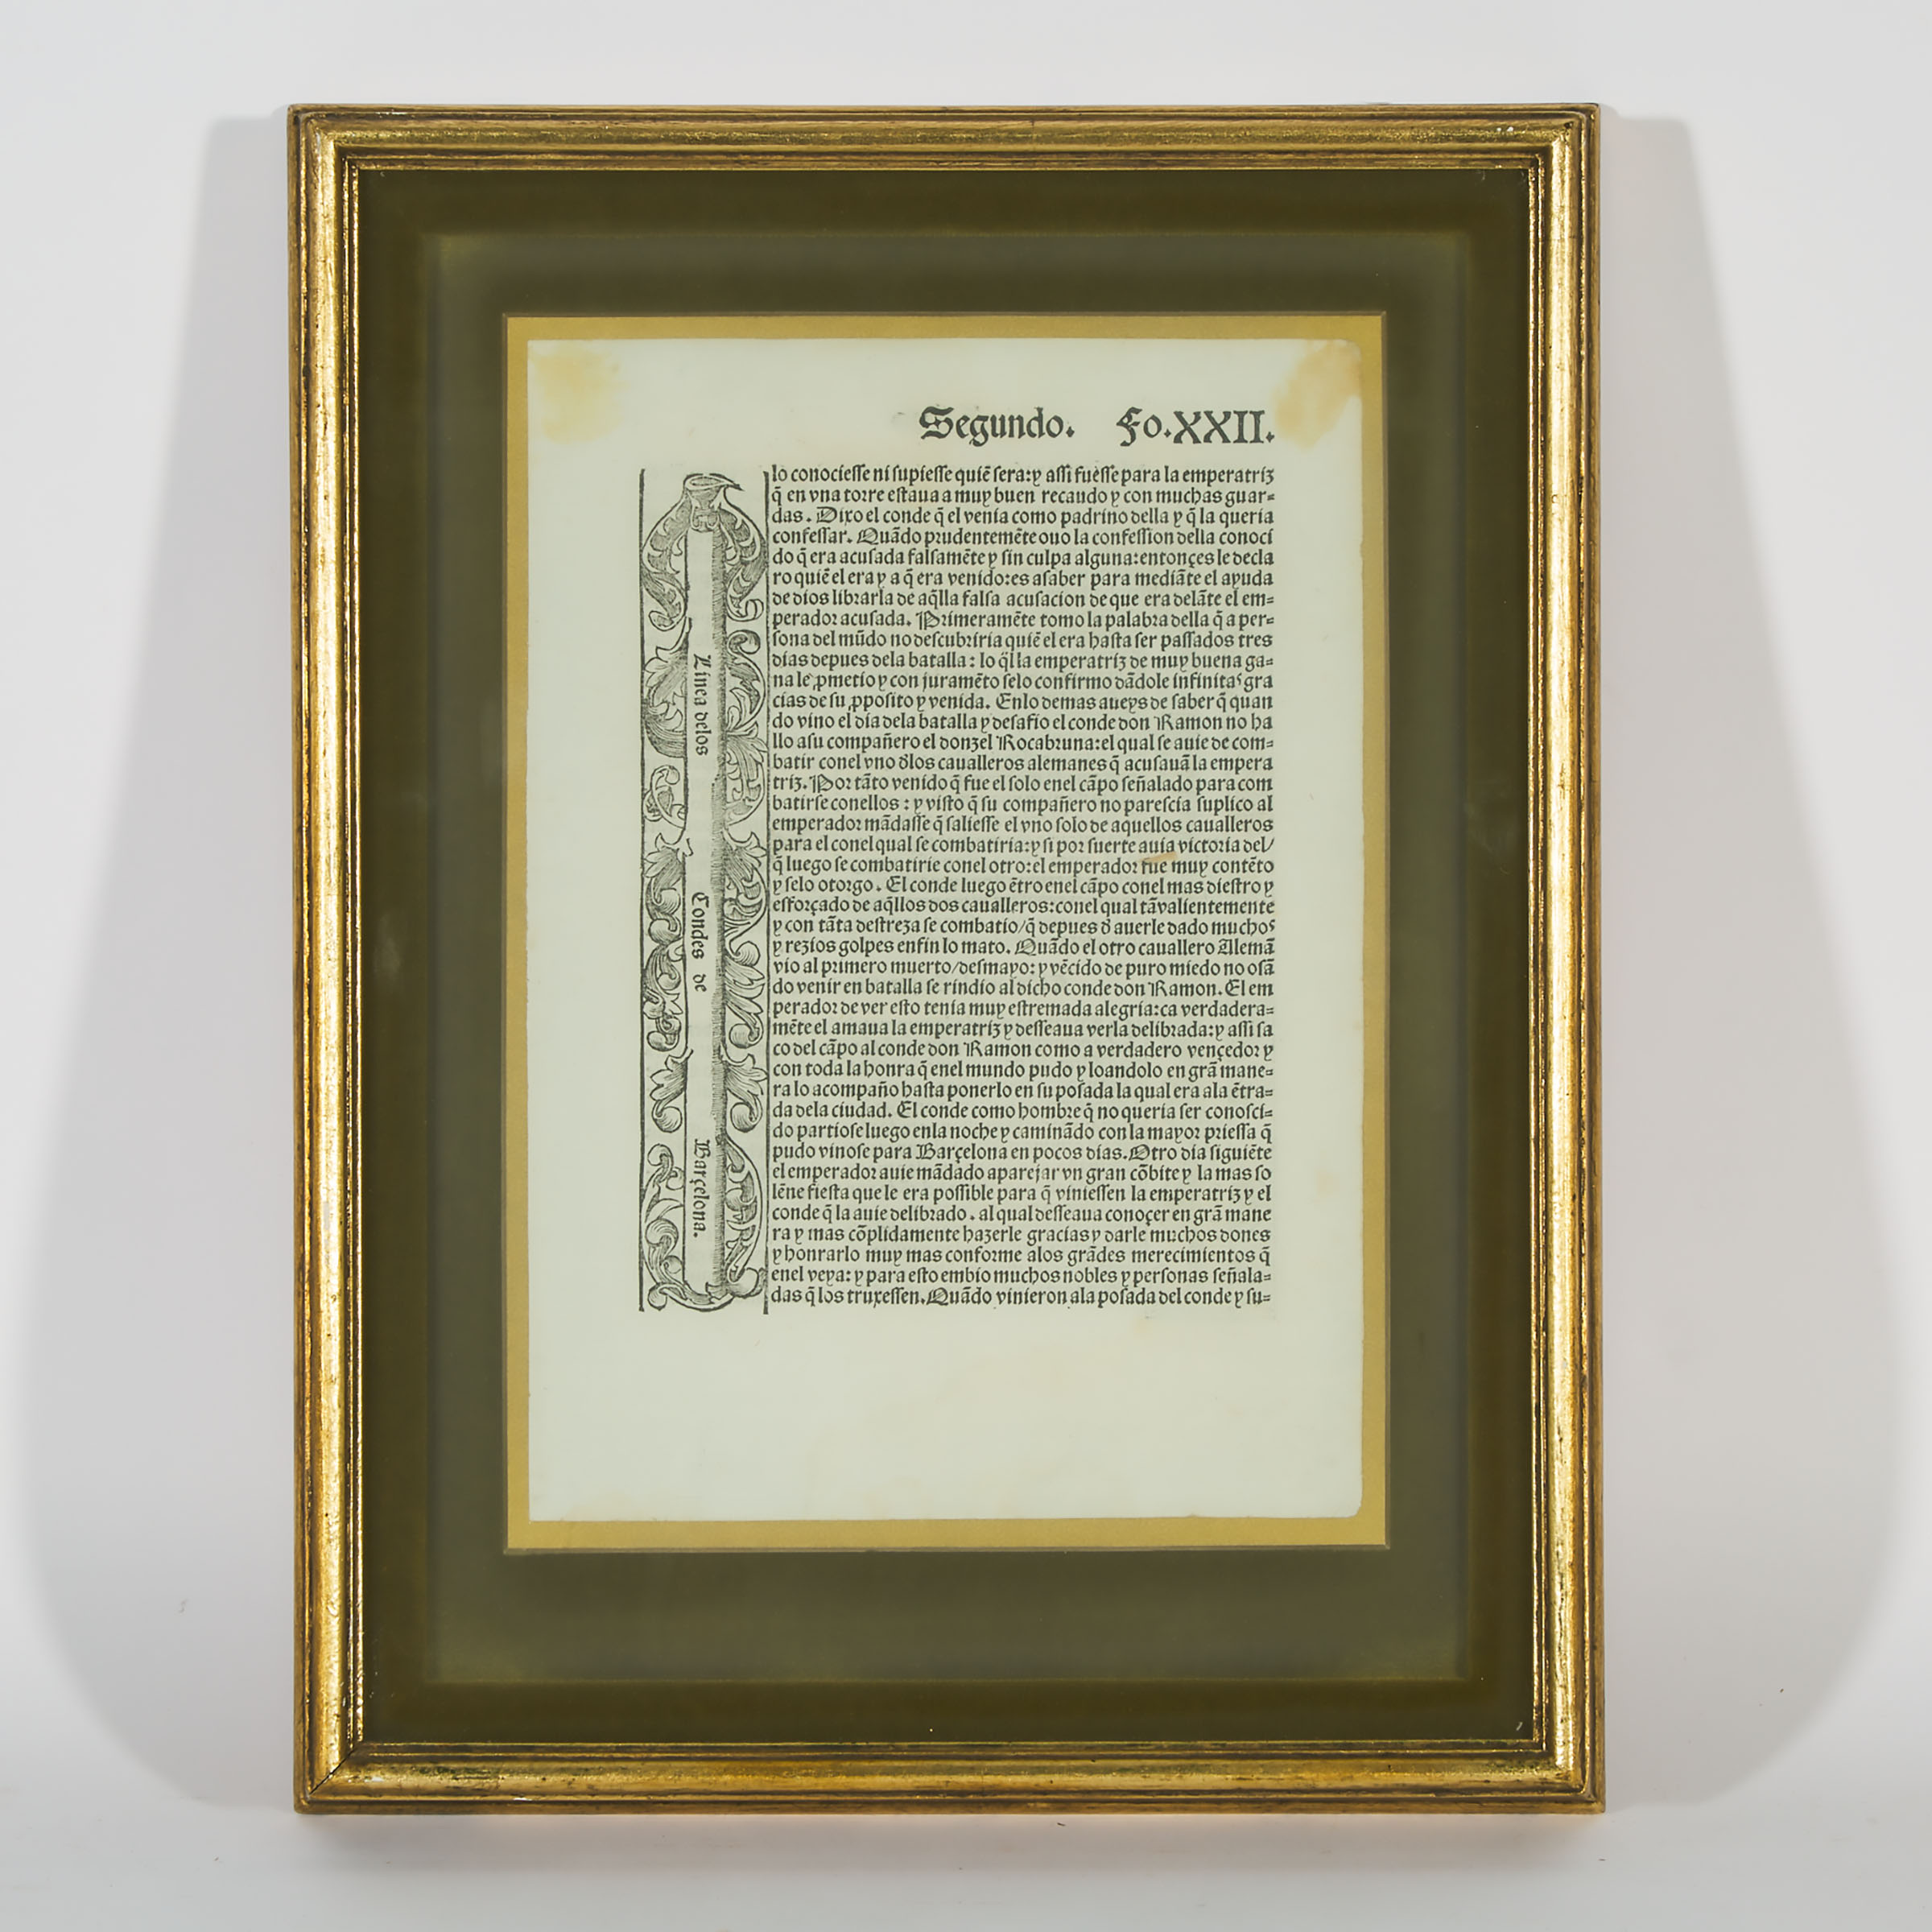 Segundo. Fo.XXII.
Linea delos Condes de Barçelona.
lo conociesse ni supiesse quiē sera:y assi fuesse para la emperatriz
q̄ en vna torre estaua a muy buen recaudo y con muchas guar-
das. Dixo el conde q̄ el venia como padrino della y q̄ la queria
confessar. Quādo prudentemēte ouo la confession della conoci
do q̄ era acusada falsamēte y sin culpa alguna:entonçes le decla
ro quiē el era y a q̄ era venido:es asaber para mediāte el ayuda
de dios librarla de aq̄lla falsa acusacion de que era delāte el em-
perador acusada. Primeramēte tomo la palabra della q̄ a per-
sona del mūdo no descubriria quiē el era hasta ser passados tres
dias depues dela batalla: lo q̄l la emperatriz de muy buena ga-
na le ꝓmetio y con juramēto selo confirmo dādole infinitas gra
cias de su ꝓposito y venida. Enlo demas aueys de saber q̄ quan
do vino el dia dela batalla y desafio el conde don Ramon no ha
llo asu compañero el donzel Rocabruna:el qual se auie de com-
batir conel vno đlos caualleros alemanes q̄ acusauā la empera
triz. Por tāto venido q̄ fue el solo enel cāpo señalado para com
batirse conellos: y visto q̄ su compañero no parescia suplico al
emperador mādasse q̄ saliesse el vno solo de aquellos caualleros
para el conel qual se combatiria:y si por suerte auia victoria del/
q̄ luego se combatirie conel otro:el emperador fue muy contēto
y selo otorgo. El conde luego ētro enel cāpo conel mas diestro y
esforçado de aq̄llos dos caualleros:conel qual tā valientemente
y con tāta destreza se combatio/q̄ depues đ auerle dado muchos
y rezios golpes enfin lo mato. Quādo el otro cauallero Alemā
vio al primero muerto/desmayo: y vēcido de puro miedo no osā
do venir en batalla se rindio al dicho conde don Ramon. El em
perador de ver esto tenia muy estremada alegria:ca verdadera-
mēte el amaua la emperatriz y desseaua verla delibrada:y assi sa
co del cāpo al conde don Ramon como a verdadero vençedor y
con toda la honra q̄ enel mundo pudo y loandolo en grā mane-
ra lo acompaño hasta ponerlo en su posada la qual era ala ētra-
da dela ciudad. El conde como hombre q̄ no queria ser conosci-
do partiose luego enla noche y camināndo con la mayor priessa q̄
pudo vinose para Barçelona en pocos dias. Otro dia siguiēte
el emperador auie mādado aparejar vn gran cōbite y la mas so
lēne fiesta que le era possible para q̄ viniessen la emperatriz y el
conde q̄ la auie delibrado. al qual desseaua conoçer en grā mane
ra y mas cōplidamente hazerle gracias y darle muchos dones
y honrarlo muy mas conforme alos grādes merecimientos q̄
enel veya: y para esto embio muchos nobles y personas señala-
das q̄ los truxessen. Quādo vinieron ala posada del conde y su-